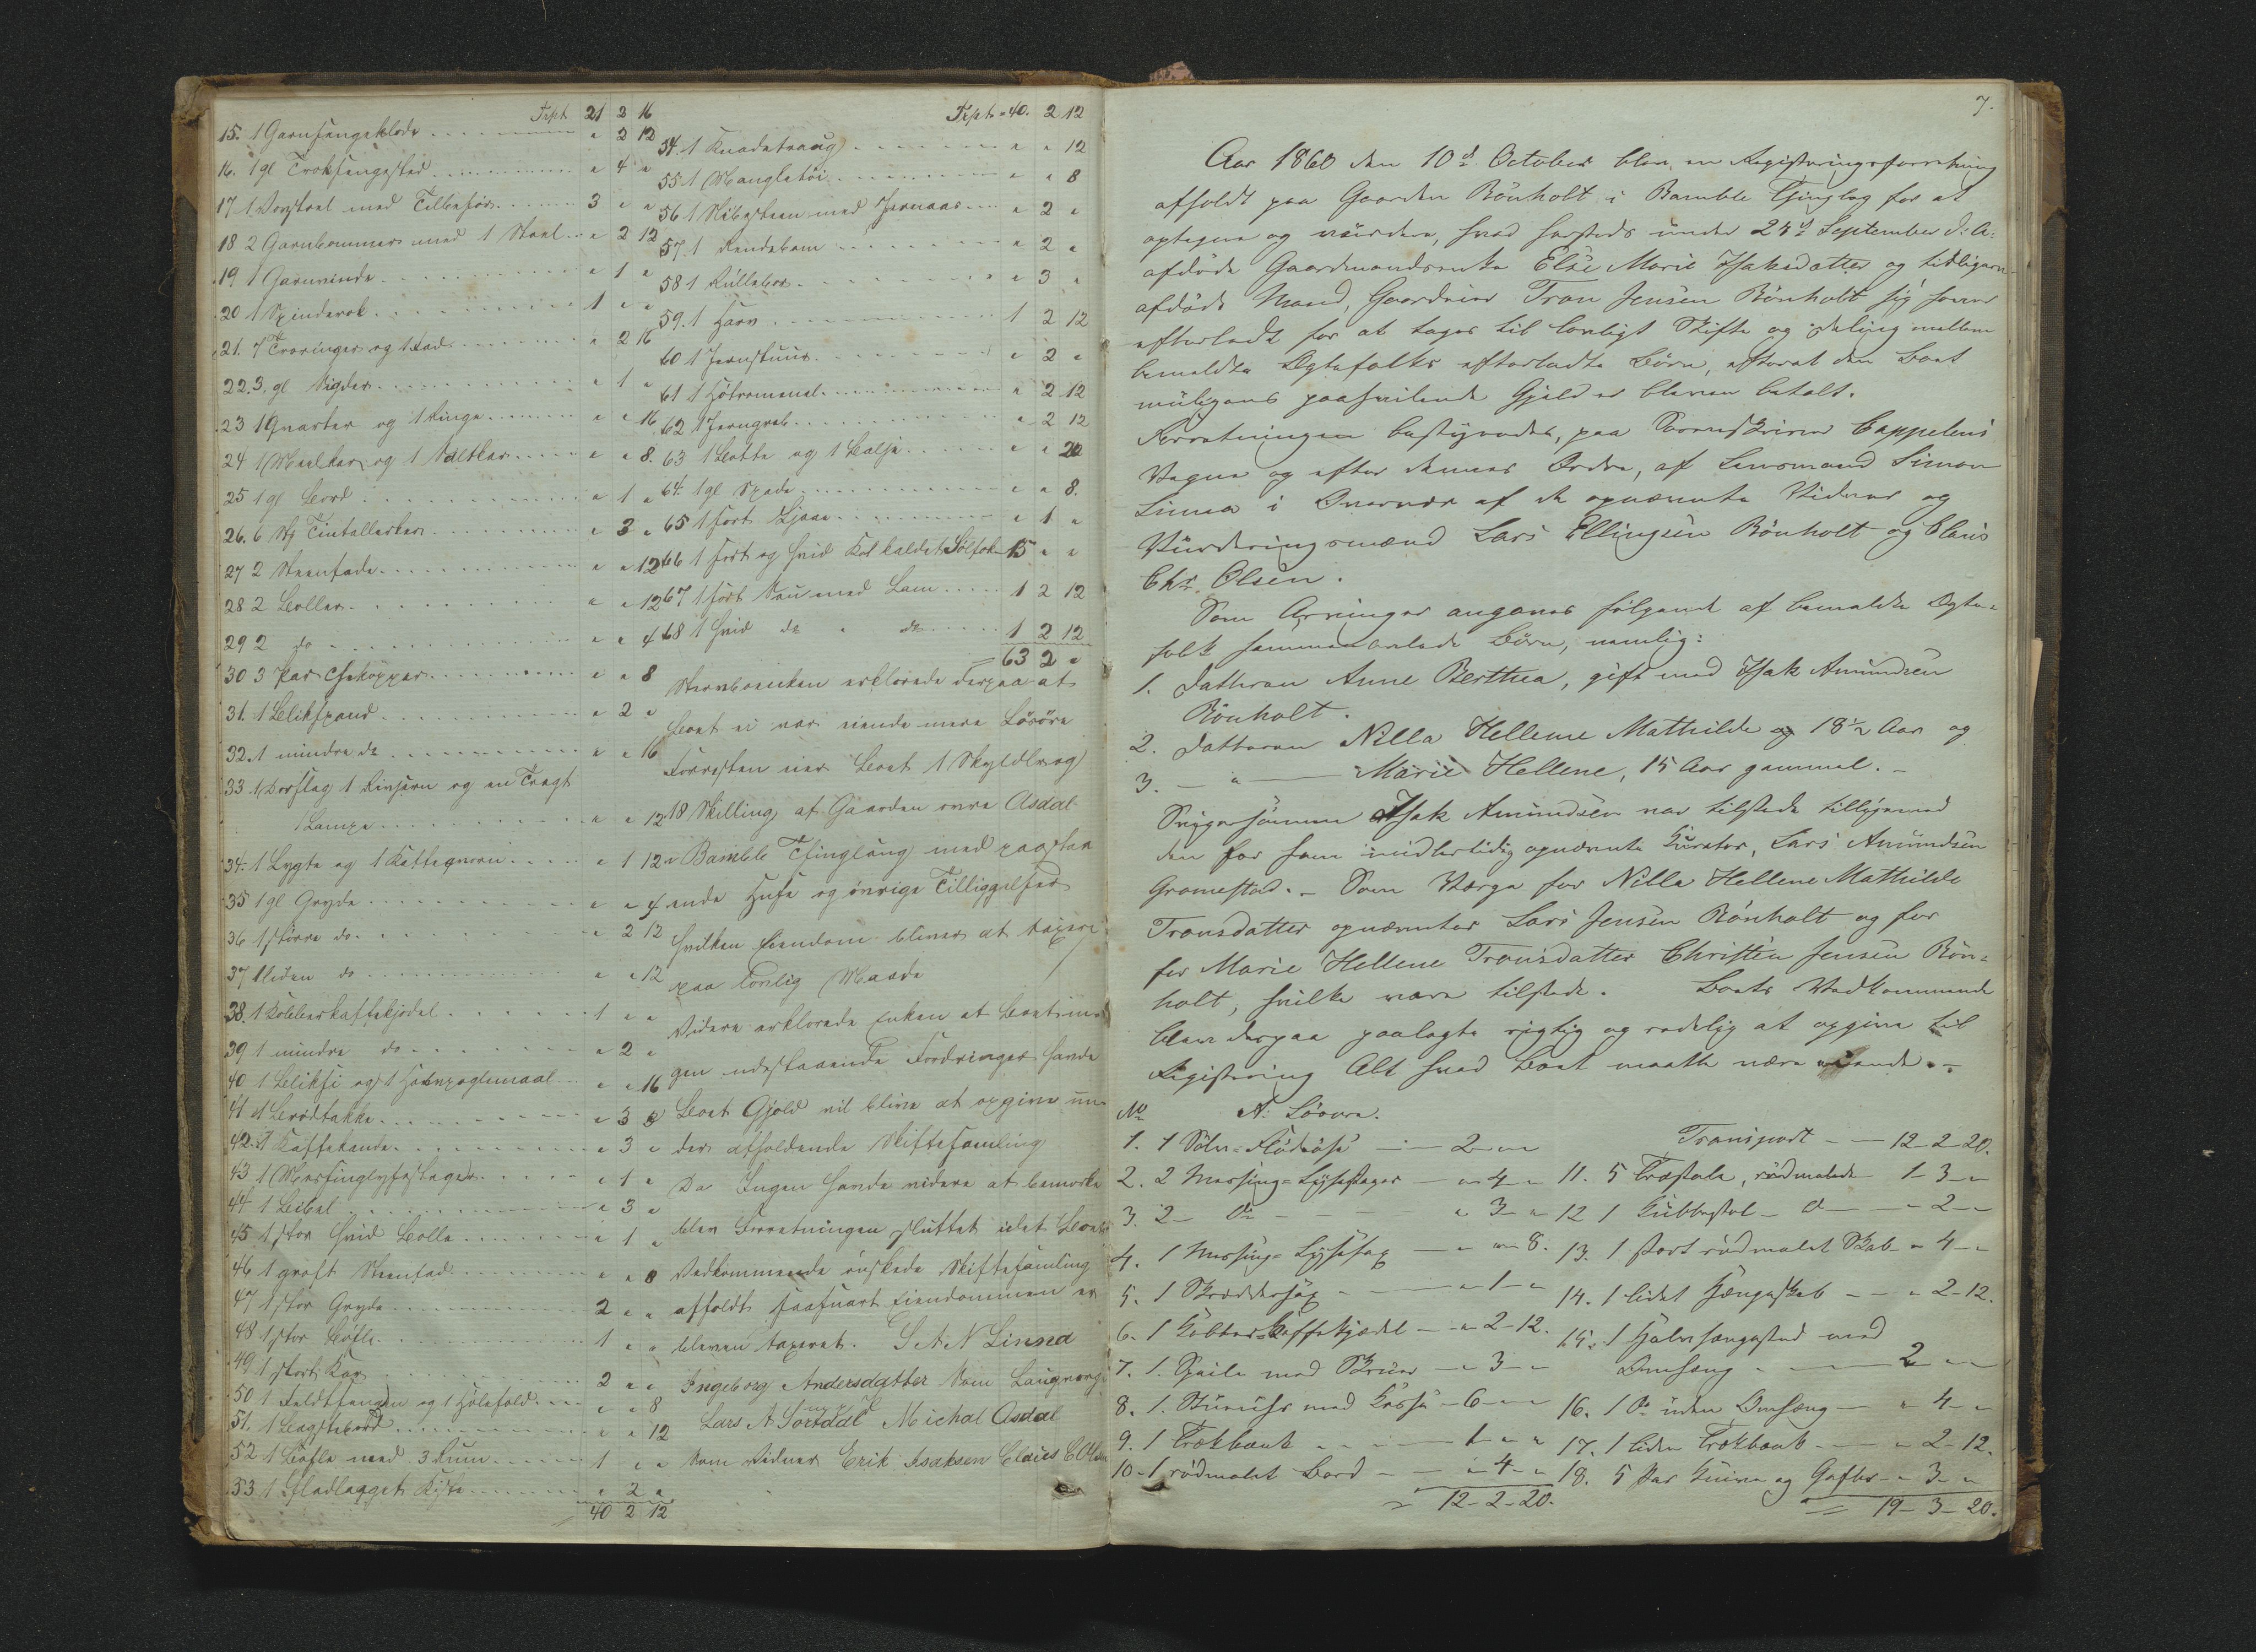 Trpt 21 2 16
15. 1 Garnsengeklæde " 2 12
16. 1 gl Træksengested " 4 "
17 1 Vævstoel med Tilbehør 3 " "
18 2 Garnbommer med 1 Stoel " 2 12
19 1 Garnvinde " 1 "
20 1 Spinderok 1 " "
21. 7 Træringer og 1 Fad " 2 16
22. 3. gl Sigder " 1 "
23 1 Qvarter og 1 Ringe " " 16
24 1 Melkar og 1 Saltkar " " 8.
25 1 gl Bord " 1 "
26. 6 St Tintallerker " 3 "
27 2 Steenfade " " 12
28 2 Boller " " 12
29 2 do " " 4
30 3 Par Thekopper " " 8
31. 1 Blikspand " 2 "
32. 1 mindre do " " 16
33 1 Dørslag 1 Rivjern og en Tragt
1 Lampe " " 12
34. 1 Lygte og 1 Kaffeqværn " 1 12
35 1 gl Gryde " " 4
36 1 større do " 2 12
37 1 liden do " " 12
38. 1 Kobberkaffekjedel 1 " "
39 1 mindre do " 2 "
40 1 Bliksi og 1 " " 16
41 1 Brødtakke " 3
42. 1 Kaffekande " 3 "
43 1 Messinglysestager " 1 "
44 1 Bibel " 3 "
45 1 stor hvid Bolle " 1 "
46 1 groft Steenfad " " 8
47 1 stor Gryde 2 " "
48 1 stor Bøtte 1 " "
49 1 stort Kar 2 " "
50 1 og 1 " " 8
51. 1 Bagstebord " " 12
52 1 med 3 Rum 1 " "
53 1 Kiste " 2 "
40 2 12
Trpt " 40. 2 12
54. 1 Knadetraug " " 12
55 1 Mangletøi " " 8
56 1 Slibesteen med Jernaas " 2 "
57. 1 " 2 "
58 1 " 3 "
59. 1 Harv 1 2 12
60 1 Jernstuur " 2 "
61 1 " 2 12
62 1 Jerngreb " 2 12
63 1 Bøtte og 1 Balje " " 20
64. 1 gl Spade " " 8.
65 1 sort " 1 "
66 1 sort og hvid Ko kaldet 15 " "
67 1 sort Sau med Lam 1 2 12
68 1 hvid do " do 1 2 12
63 2 "
Stervboenken erklærede derpaa at
Boet ei var eiende mere Løsøre
Forresten eier Boet 1 Skylddlr og
18 Skilling af Gaarden øvre Asdal
i Bamble Thinglaug med paastaa
ende Huse og øvrige Tilliggelser
hvilken Eiendom bliver at taxere
paa lovlig Maade
Videre erklærede Enken at Boet in
gen udestaaende Fordringer havde
Boet Gjeld vil blive at opgive un-
der afholdende Skiftesamling
Da Ingen havde videre at bemærke
blev Forretningen sluttet idet Boets
Vedkommende ønskede Skiftesamling
afholdt saasnart Eiendommen er
bleven taxeret. S A N Linna
Ingeborg Andersdatter Som Laugværge
Lars A Sortdal Michal Asdal
Som Vidner Erik Isaksen Claus C Olsen
7.
Aar 1860 den 10de October blev en Registreringsforretning
afholdt paa Gaarden Rönholt i Bamble Thinglag for at
optegne og vurdere, hvad sammesteds under 24de September d: A:
afdøde Gaardmandsenke Else Marie Isaksdatter og tidligere
afdøde Mand, Gaardeier Tron Jensen Rönholt sig haver
efterladt for at tages til lovligt Skifte og Deling mellem
bemeldte Egtefolks efterladte Börn, efterat den Boet
muligens paahvilende Gjeld er bleven betalt.
Forretningen bestyredes, paa Sorenskriver Cappelens
Vegne og efter dennes Ordre, af Lensmand Simon
Linna i Overvær af de opnævnte Vidner og
Vurderingsmænd Lars Ellingsen Rönholt og Claus
Chr. Olsen.
Som Arvinger angaves følgende af bemeldte Egte-
folk sammenavlede Börn, nemlig:
1. Datteren Anne Berthea, gift med Isak Amundsen
Rönholt.
2. Datteren Nilla Hellene Mathilde 18½ Aar og
3. — " — Marie Hellene, 15 Aar gammel. -
Svigersønnen Isak Amundsen var tilstede tilligemed
den for ham midlertidig opnævnte Curator, Lars Amundsen
Gromestad. - Som Værge for Nilla Hellene Mathilde
Tronsdatter opnævntes Lars Jensen Rönholt og for
for Marie Hellene Tronsdatter Christen Jensen Rön=
holt, hvilke være tilstede. Boets Vedkommende
bleve derpaa paalagte rigtig og redelig at opgive til
Registrering Alt hvad Boet maatte være eiende. -
No A: Lösøre.
1. 1 Sølv= 2 " "
2. 2 Messing=Lysestager " 4 "
3. 2 - do " 3 "
4. 1 Messing= Lysesax " " 8.
5. 1 Skreddersax " 1 "
6. 1 Kobber Kaffekjædel " 2 - 12.
7. 1. Speile med Skuer " 3 "
8. 1. Stueuhr med Kasse 6 " "
9. 1 Trækbænk 1 " "
10. 1 rödmalet Bord " 4 "
12 - 2 - 20.
Transport 12 - 2 - 20.
11. 5 Træstole, rödmalede 1 - 3 "
12 1 Kubbestol - do " 2 "
13. 1 stort rödmalet Skab " 4 "
14. 1 lidet Hængeskab " 2 - 12.
15. 1 Halvsengested med
Omhæng 2 " "
16. 1 do uden Omhæng " 4 "
17. 1 liden Trækbænk " 2 - 12.
18. 5 Par Knive og Gafler " 3 "
19 - 3 - 20.